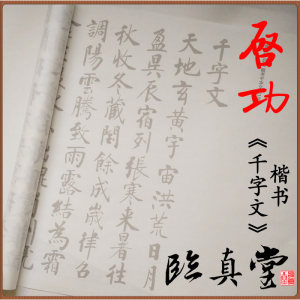 啟功
楷书
《千字文》
千字文
天地玄黄宇宙洪荒日月
盈昃辰宿列張寒来暑往
秋收冬藏閏餘成歲律召
調陽雲騰致雨露結為霜
臨真堂